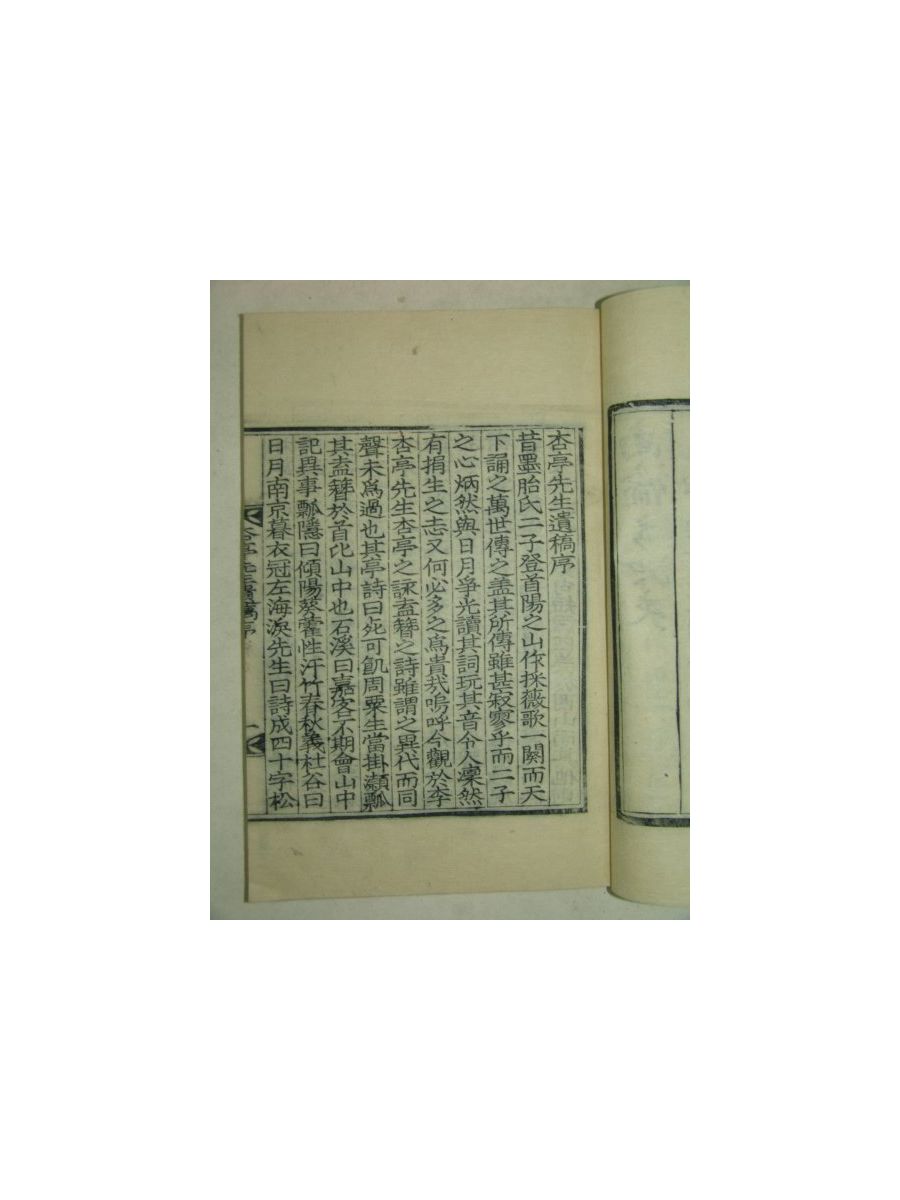 杏亭先生遺稿序
昔墨胎氏二子登首陽之山作採薇歌一闋而天
下誦之萬世傳之盖其所傳雖甚寂寥乎而二子
之心炳然與日月爭光讀其詞玩其音令人凜然
有捐生之志又何必多之爲貴㦲嗚呼今觀於李
杏亭先生杏亭之詠盍簪之詩雖謂之異代而同
聲未爲過也其亭詩曰死可飢周粟生當掛瓢
其盍簪於首比山中也石溪曰嘉客不期會山中
記異事瓢隱曰傾陽葵藿性汗竹春秋義杜谷曰
日月南京暮衣冠左海淚先生曰詩成四十字松
杏亭先生遺稿序
一